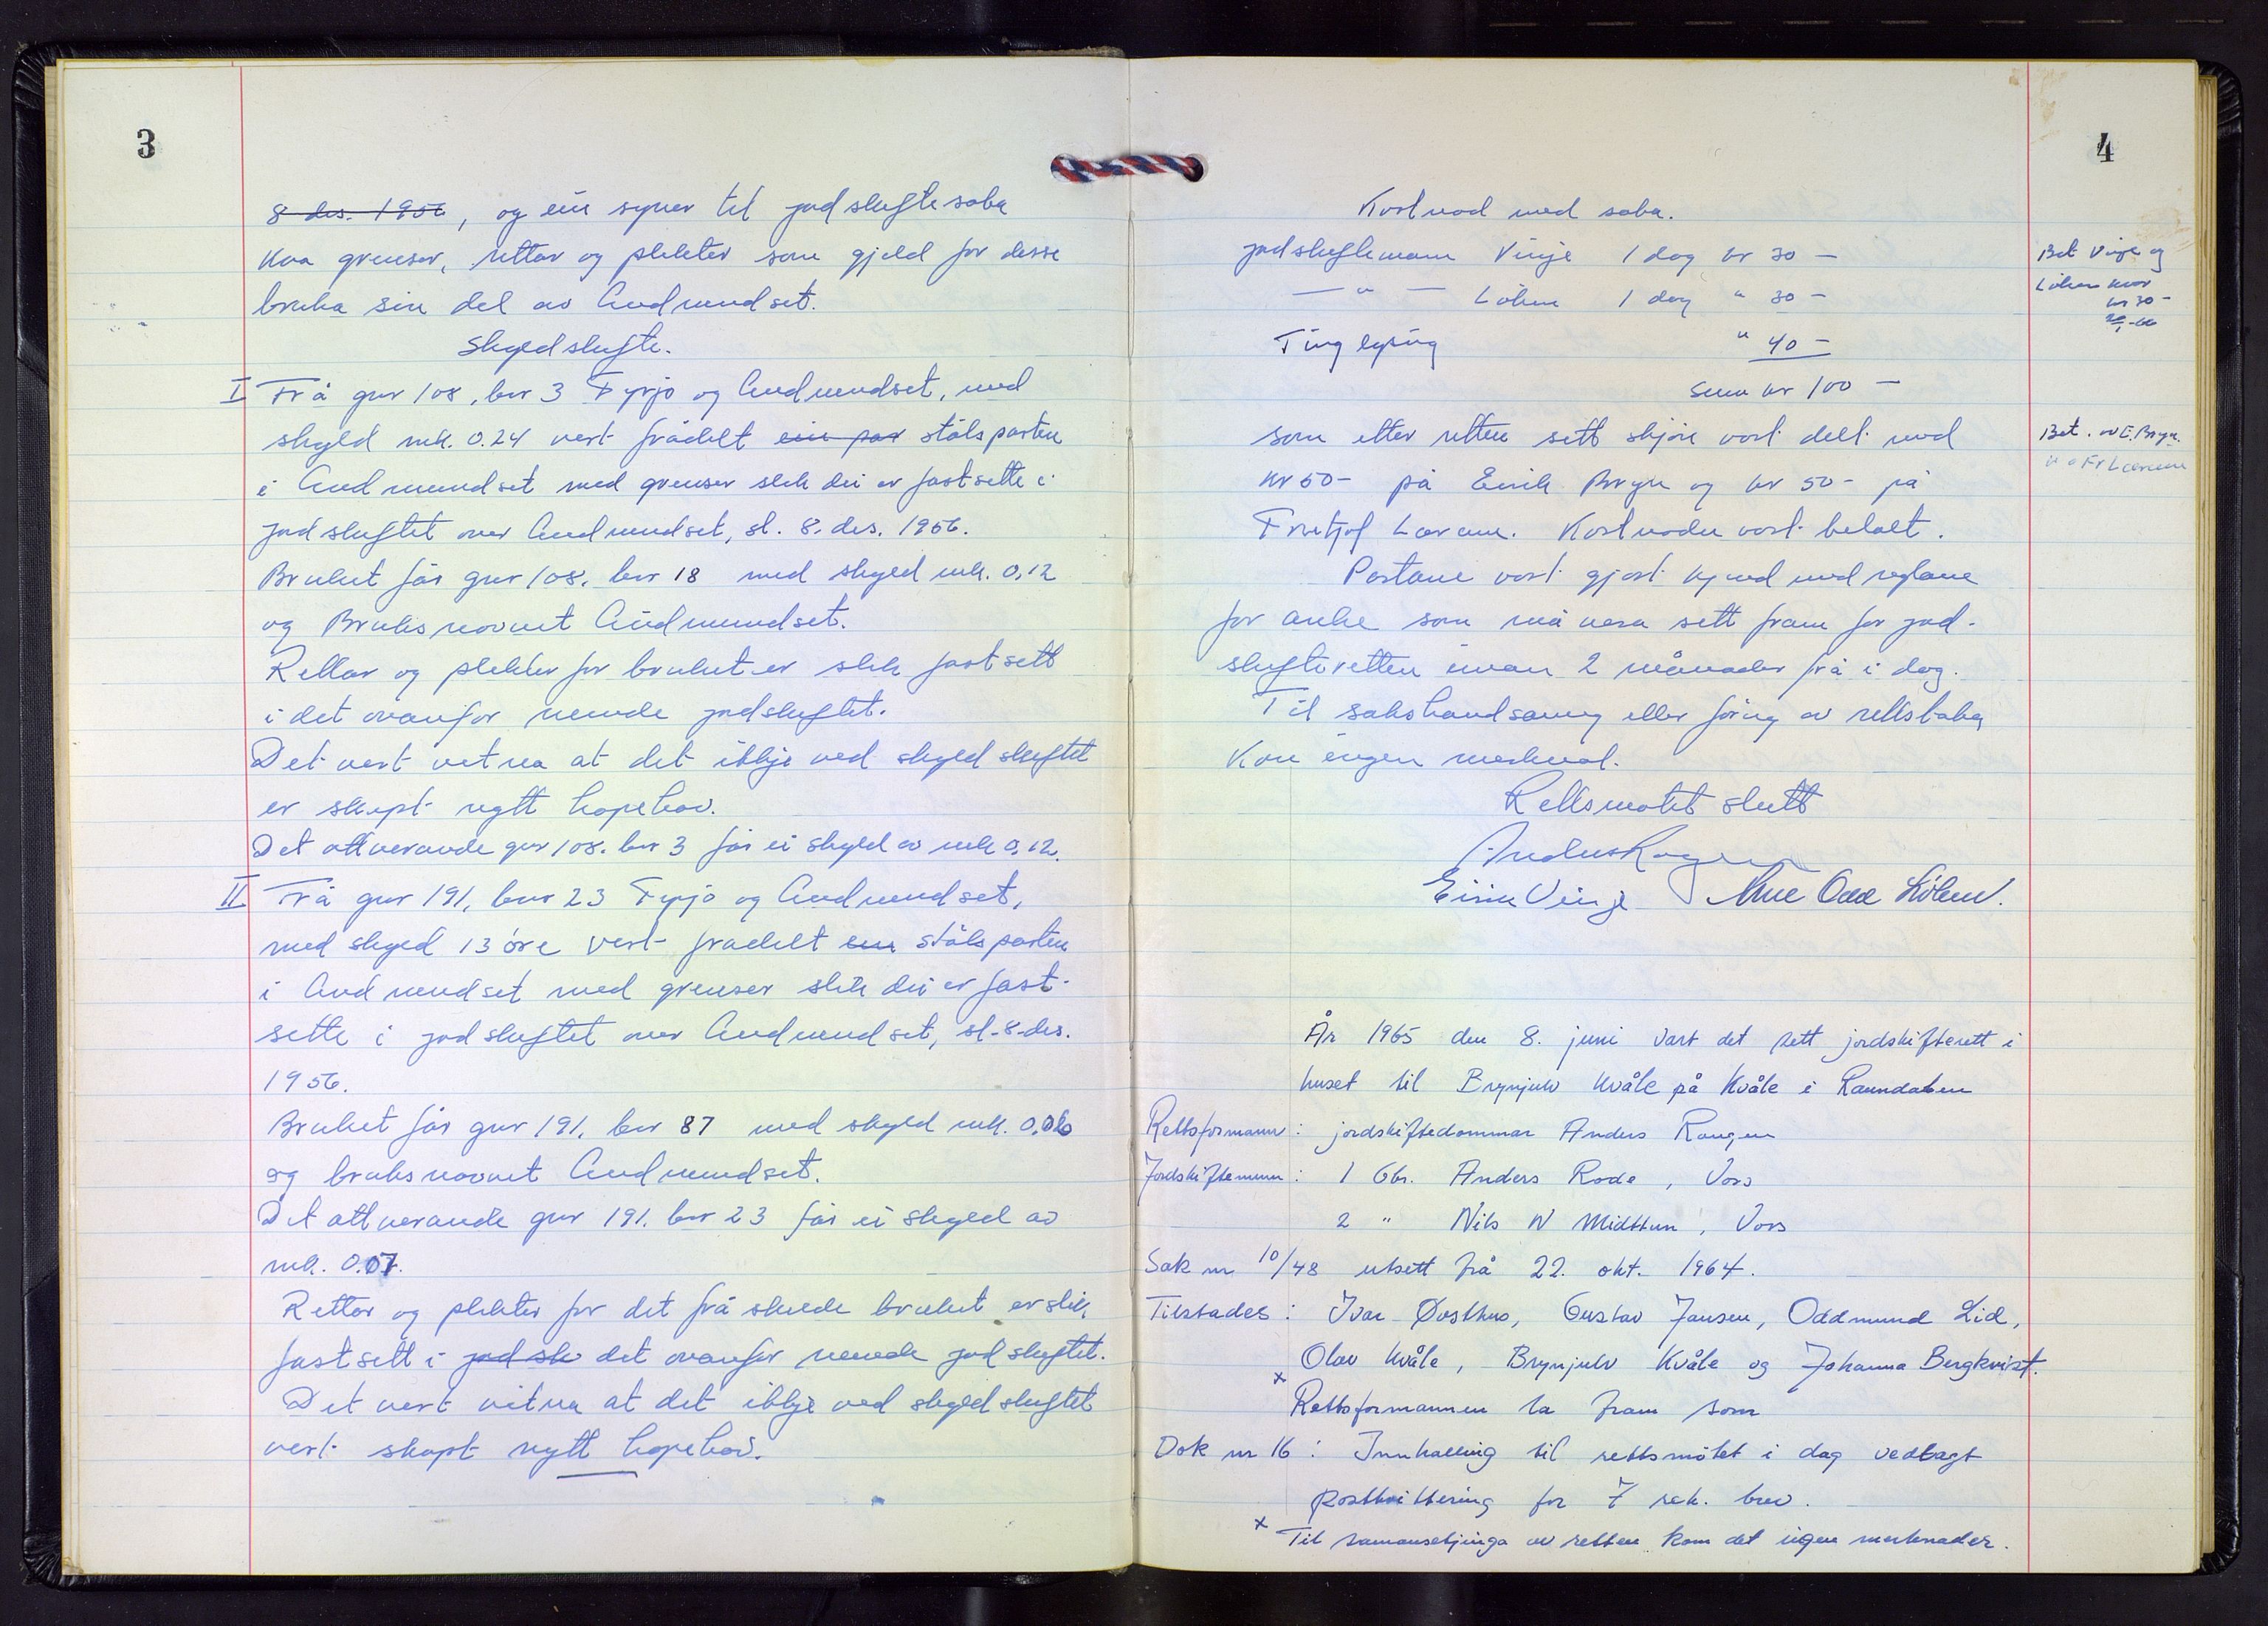 3
8 des. 1956, og ein syner til jordskiftesaka
kva grenser, rettar og plikter som gjeld for desse
bruka sin del av Audmundset.
Skyldskifte.
I Frå gnr 108, bnr 3 Fyrjo og Audmundset, med
skyld mk. 0.24 vert frådelt ein par stølsparten
i Audmundset med grenser slik dei er fastsette i
jordskiftet over Audmundset, sl. 8. des. 1956.
Bruket får gnr 108, bnr 18 med skyld mk. 0,12
og Bruksnavnet Audmundset.
Rettar og plikter for bruket er slik fastsett
i det ovanfor nemnde jordskiftet.
Det vert vitna at det ikkje ved skyldskiftet
er skapt nytt hopehav.
Det attverande gnr 108. bnr 3 får ei skyld av mk 0,12.
II Frå gnr 191, bnr 23 Fyrjo og Audmundset,
med skyld 13 øre vert frådelt ein stølsparten
i Audmundset med grenser slik dei er fast-
sette i jordskiftet over Audmundset, sl. 8. des.
1956.
Bruket får gnr 191, bnr 87 med skyld mk. 0,06
og bruksnavnet Audmundset.
Det attverande gnr 191. bnr 23 får ei skyld av
mk. 0.07.
Rettar og plikter for det fråskilde bruket er slik
fastsett i jordsk det ovanfor nemnde jordskiftet.
Det vert vitna at det ikkje ved skyldskiftet
vert skapt nytt hopehav.
4
Kostnad med saka.
jordskiftemann Vinje 1 dag kr 30 -
— " — Löhne 1 dag " 30 -
Tinglysing " 40 -
Sum kr 100 -
Bet Vinje og
Löhne kvar
kr 30 -
som etter retten sett skjøn vart delt med
kr 50- på Eirik Bryn og kr 50- på
Fritjof Lærum. Kostnaden vart betalt.
Bet. av E. Bryn.
" " Fr Lærum
Partane vart gjort kjend med reglane
for anke som må vera sett fram for jord-
skifteretten innan 2 månader frå i dag.
Til sakshandsaming eller føring av rettsboka
kom ingen merknad.
Rettsmøtet slutt
Anders Rogen
Eirik Vinje Odd Löhne.
År 1965 den 8. juni vart det sett jordskifterett i
huset til Brynjulv Kvåle på Kvåle i Raundalen
Rettsformann: jordskiftedommar Anders Raugen
Jordskiftemenn: 1 Gbr. Anders Rode, Voss
2 " Nils N Midttun, Voss
Sak nr 10/48 utsett frå 22. okt. 1964.
Tilstades: Ivar Øvsthus, Gustav Jansen, Oddmund Lid,
Olav Kvåle, Brynjulv Kvåle og Johanna Bergkvist.
x
Rettsformannen la fram som
Dok nr 16: Innkalling til rettsmøtet i dag vedlagt
postkvittering for 7 rek. brev.
x Til samansetjinga av retten kom det ingen merknader.